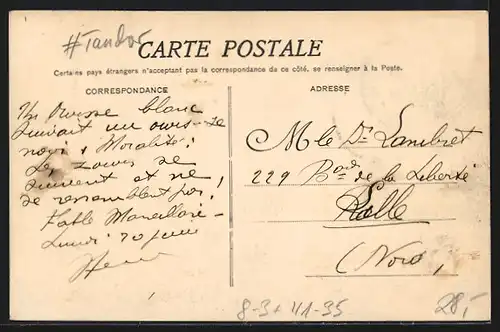 #Tandor
CARTE POSTALE
Certains pays étrangers n'acceptant pas la correspondance de ce côté, se renseigner à la Poste.
CORRESPONDANCE
Un Ourse blanc
suivait un ours
noir, Moralité:
Les jours se
suivent et ne
se ressemblent pas!
Fable Marseillaise
Lundi 20 juin
ADRESSE
M le Dr Lambret
229 Bard de la Liberté
Lille
(Nord)
8-3+ 41-35
28,-